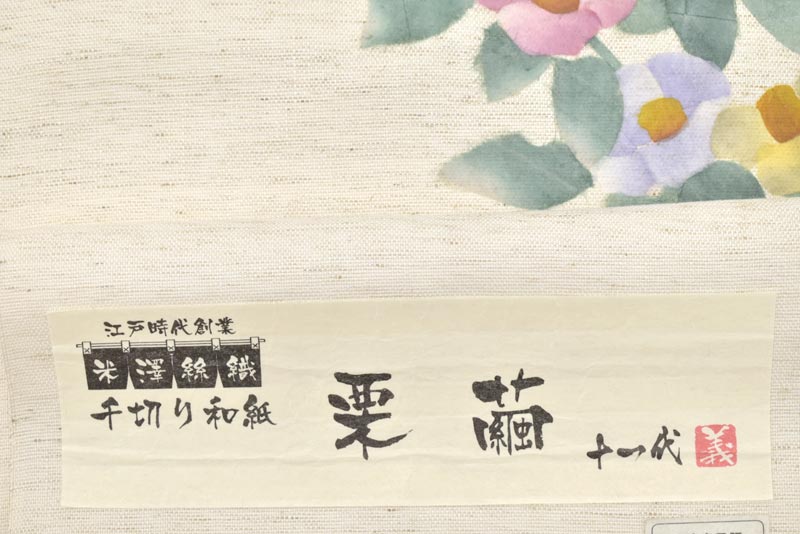 江戸時代創業
米澤絲織
千切り和紙
栗繭
十一代
義